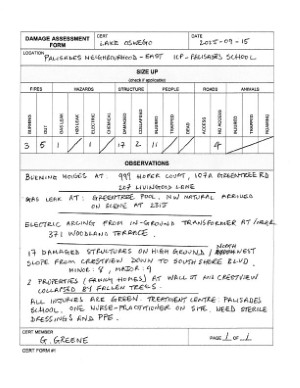 DAMAGE ASSESSMENT FORM
CERT
LAKE OSWEGO
DATE
2025-09-15
LOCATION
PALISADES NEIGHBOURHOOD - EAST ICP - PALISADES SCHOOL
SIZE UP
(check if applicable)
FIRES HAZARDS STRUCTURE PEOPLE ROADS ANIMALS
BURNING OUT GAS LEAK H2O LEAK ELECTRIC CHEMICAL DAMAGED COLLAPSED INJURED TRAPPED DEAD ACCESS NO ACCESS INJURED TRAPPED ROAMING
3 5 1 / 1 / 17 2 11 / / 4
OBSERVATIONS
BURNING HOUSES AT: 999 HOPER COURT, 1078 GREENTREE RD
207 LIVINGOOD LANE
GAS LEAK AT: GREENTREE POOL, NW NATURAL ARRIVED
ON SCENE AT 2315
ELECTRIC ARCING FROM IN-GROUND TRANSFORMER AT/NEAR
371 WOODLAND TERRACE.
17 DAMAGED STRUCTURES ON HIGH GROUND / NORTHWEST
SLOPE FROM CRESTVIEW DOWN TO SOUTH SHORE BLVD.
MINOR: 8, MAJOR: 9
2 PROPERTIES (FAMILY HOMES) AT CRESTVIEW
COLLAPSED BY FALLEN TREES.
ALL INJURIES ARE GREEN. TREATMENT CENTRE: PALISADES
SCHOOL. ONE NURSE-PRACTITIONER ON SITE. NEED STERILE
DRESSINGS AND PPE.
CERT MEMBER
G. GREENE
PAGE 1 OF 1
CERT FORM #1